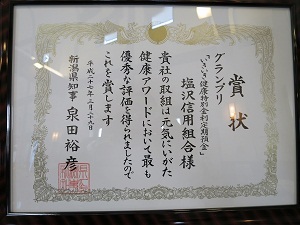 賞状
グランプリ
「いきいき健康特別金利定期預金」
塩沢信用組合様
貴社の取組は元気にいがた
健康アワードにおいて最も
優秀な評価を得られましたので
これを賞します
平成二十七年三月二十九日
新潟県知事 泉田裕彦